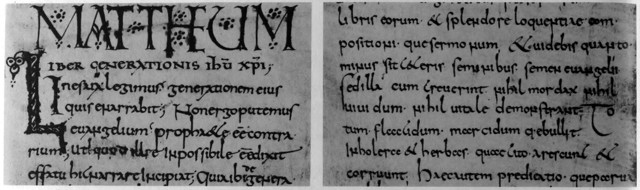 MATTHEUM
LIBER GENERATIONIS IHŪ XPI;
In esaia legimus generationem eius
quis enarrabit; Non ergo putemus
euangelium prophetae eē contra
rium; Ut quod ille Inpossibile eē dixit
effatu hic narrare Incipiat; Quia ibi de genera
libris eorum & splendore loquentiae com
positioni que sermonum, & uidebis quanto
minus sit ceteris seminibus semen euangelii
Sed illa cum creuerint nihil mordax nihil
uiuidum. nihil uitale demonstrant; To
tum flaccidum. marcidum ebullit
In holera et herbas quae cito arescunt &
corruunt; Haec autem predicatio que